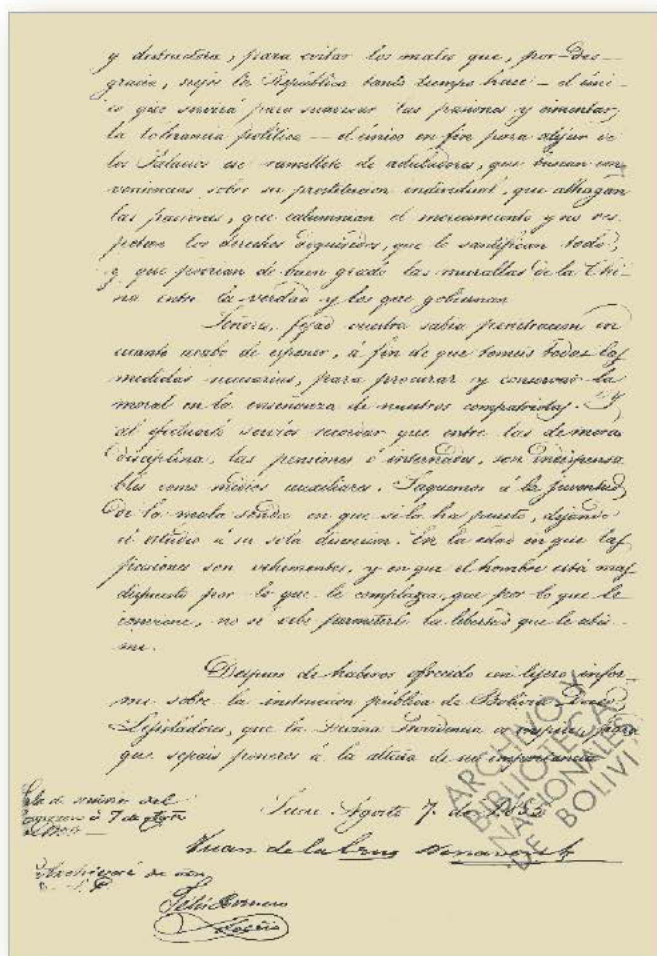 y destructora, para evitar los males que, por des-
gracia, sufre la República tanto tiempo hace — el úni-
co que servirá para suavisar las pasiones y cimentar
la tolerancia política — el único en fin para alejar de
los Palacios ese ramillete de aduladores, que buscan con
veniencias sobre su prostitucion individual, que alhagan
las pasiones, que calumnian el merecimiento y no res
petan los derechos adquiridos, que lo santifican todo,
y que pondrian de buen grado las murallas de la Chi-
na entre la verdad y los que gobiernan
Señores, fijad vuestra sabia penetracion en
cuanto acabo de esponer, á fin de que tomeis todas las
medidas necesarias, para procurar y conservar la
moral en la enseñanza de nuestros compatriotas. Y
al efectuarlo servíos recordar que entre las de mera
disciplina, las pensiones ó internados, son indispensa
bles como medios auxiliares. Saquemos á la juventud
de la mala senda en que se la ha puesto, dejando
el estudio á su sola discrecion. En la edad en que las
pasiones son vehementes, y en que el hombre está mas
dispuesto por lo que le complazca, que por lo que le
conviene, no se debe permitirle la libertad que le abis-
me.
Despues de haberos ofrecido un lijero infor-
me sobre la instruccion pública de Bolivia
Lejisladores, que la Divina Providencia os inspire, para
que sepais poneros á la altura de su importancia
Sucre Agosto 7 de 1855
Juan de la Cruz Benavente
Sala de sesiones del
Congreso á 7 de Agosto
de 1855 —
Felix Romero
Srio
ARCHIVO Y
BIBLIOTECA
NACIONALES
DE BOLIVI